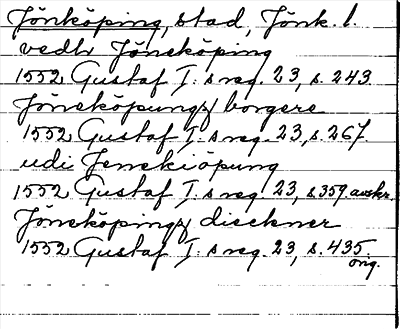 Jönköping, stad, Jönk. l.
vedh Jöneköping
1552 Gustaf I:s reg. 23, s. 243.
Jöneköpungz borgere
1552 Gustaf I:s reg. 23, s. 267.
udi Jenekiöpung
1552 Gustaf I:s reg. 23, s. 359. avskr.
Jöneköpingz dieckner
1552 Gustaf I:s reg. 23, s. 435
orig.